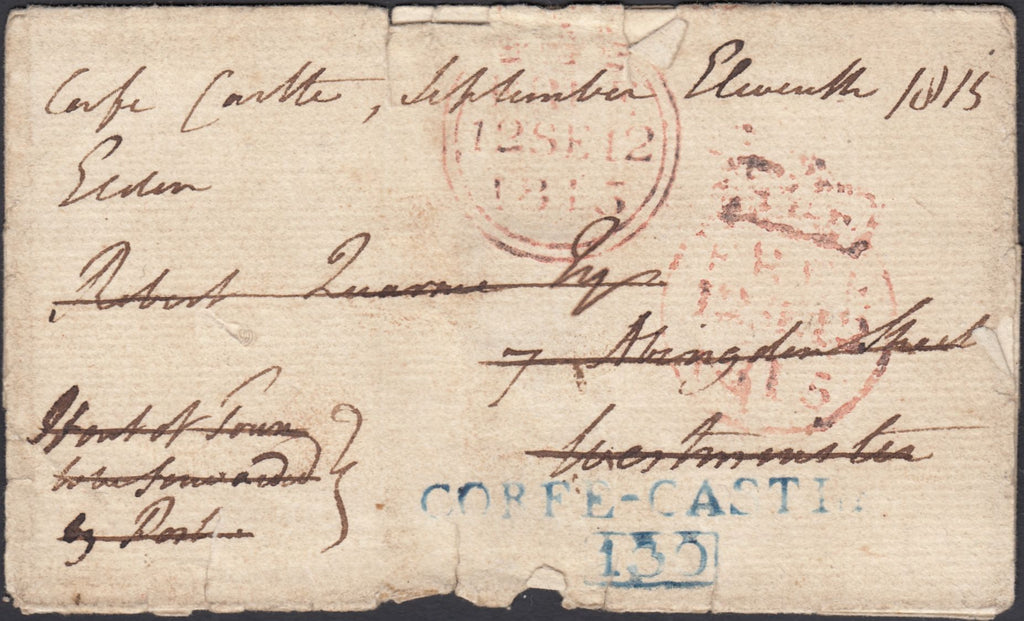 Corfe Castle, September Eleventh 1815
Eldon
Robert Quarme Esqr
7 Abingdon Street
Westminster
If out of Town
to be forwarded
by Post
12SE12
1815
1815
CORFE-CASTL
133